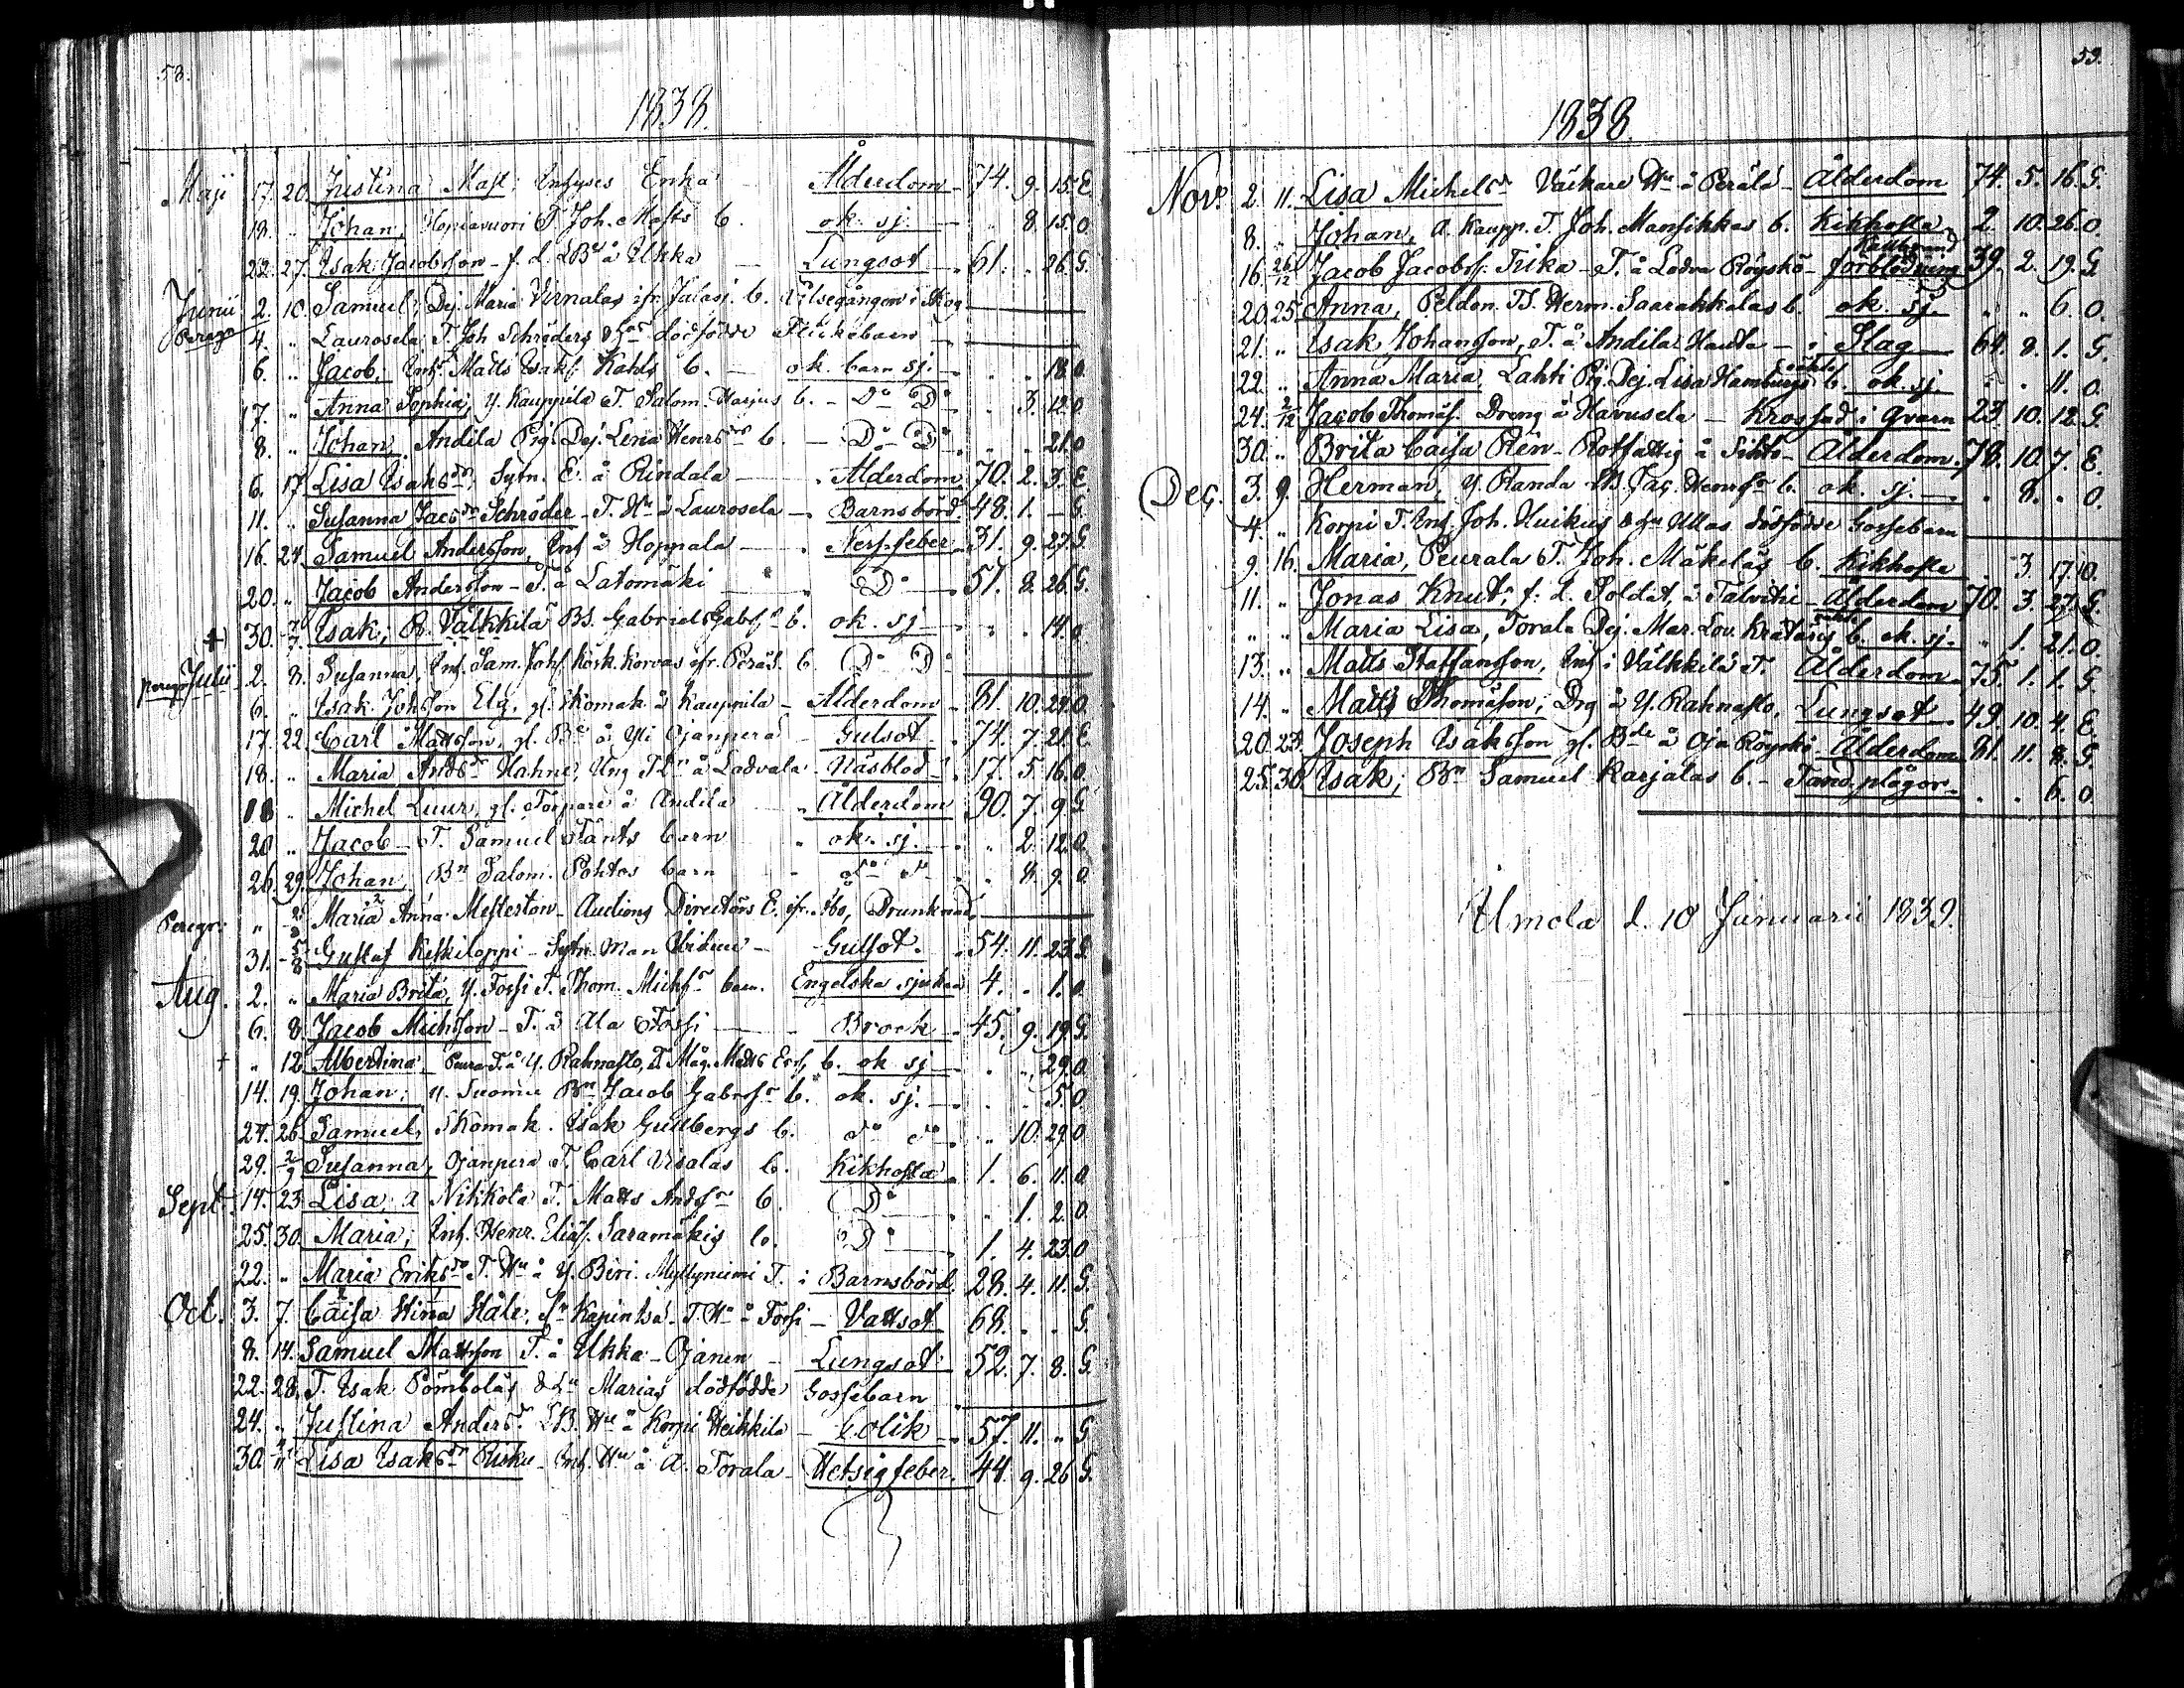 58.
1838.
Maji 17. 20. Justina Mast; Inhyses Enka Ålderdom 74. 9. 15. E
18. " Johan, Hopiavuori T. Joh. Masts b. ok. sj. 8. 15. O
22. 27. Isak Jacobsson - f. d. LBde å Ukka Lungsot 61. " 26. G.
Junii 2. 10. Samuel; Dej. Maria Virnalas ifr. Jalasj. b. Vilsegången i Skog
Peregr. 4. " Laurosela T. Joh Schröders dödfödde Flickebarn
6. " Jacob, Inh. Matts Isaks. Kahls b. ok. barn sj. 18. O
17. " Anna Sophia, Y. Kauppila T. Salom. Harjus b. Do Do 3. 12. O
8. " Johan, Andila Pig. Dej. Lena Henrsdrs b. Do Do 21. O
6. 17 Lisa Isaksdr, Sytn. E. å Rindala Ålderdom 70. 2. 3. E
11. " Susanna Jacsdr Schröder - T. Hu å Laurosela Barnsbörd 48. 1. - G.
16. 24. Samuel Andersson, Inh å Hoppala Nerf. feber 31. 9. 27. G
20. " Jacob Andersson - T. å Latomäki Do 51. 8. 26. G.
30. Isak; R. Välkkilä BS. Gabriel Gabrs b. ok. sj 14. O
peregr. Julii 2. 8. Susanna, Inh. Sam. Johs. Korvas ifr. Perås. b. Do Do
6. " Isak Johsson Elg, gl. Skomak. å Kauppila Ålderdom 81. 10. 29. O
17. 22. Carl Mattsson, gl. Bde å Yli Ojanperä Gulsot 74. 7. 21. E
18. " Maria Andsdr Hahne, Ung å Ladvala Näsblod 17. 5. 16. O
18 " Michel Luur, gl. Torpare å Andila Ålderdom 90. 7. 9. G
20 " Jacob - T. Samuel Tants barn ok. sj. 2. 12. O
26. 29. Johan, Bn Salom. Pohtos barn do do 8. 9. O
Peregr. " Maria Anna Mesterton - Auctions Directörs E. ifr. Åbo, Drunknad
31. 5/8 Gustaf Keskiloppi - Sytn. man Gulsot. 54. 11. 23. G
Aug. 2. " Maria Brita, Y. Fossi T. Thom. Michsr barn. Engelska sjukan 4. . 1. O
6. 8. Jacob Michsson - T. å Ala Fossi Brock 45. 9. 19. G
+ " 12. Albertina - Y. Rahnasto, T. Måg. Matts Ers. b. ok. sj 29. O
14. 19. Johan; Y. Tuomi Bn Jacob Gabrs b. ok. sj. 5. O
24. 26. Samuel, Skomak. Isak Gullbergs b. do do 10. 29. O
29. 2/9 Susanna, Ojanpera T. Carl Visalas b. Kikhosta 1. 6. 11. O
Sept. 14. 23. Lisa, a Nikkola T. Matts Ands b. Do 1. 2. O
25. 30. Maria; Inh. Henr. Elias. Saramäkis b. Do 1. 4. 23. O
22. " Maria Eriksdr T. Hu å Y. Biri Myllyniemi T. i Barnsbörd 28. 4. 11. G.
Oct. 3. 7. Caisa Stina Häle; T. Hu å Fossi - Vattsot 68. . . G.
8. 14. Samuel Mattsson T. å Ukka - Ojanen - Lungsot 52. 7. 8. G.
22. 28. T. Isak Pombolas & Hu Marias dödfödde Gossebarn
24. " Justina Andersdr LB. Hu å Korpi Heikkila - Colik 57. 11. " G
30. 4/11 Lisa Isaksdr Risku - Inh. Hu å A. Torala - Hetsig feber 44. 9. 26 G.
59.
1838.
Novr 2. 11. Lisa Michelsdr Väckare Hu å Perälä - Ålderdom 74. 5. 16. G.
8. " Johan, a. Kaupp. T. Joh. Mansikkas b. Kikhosta 2. 10. 26. O.
Kallbrand
16. 26/12 Jacob Jacobss. Trika - T. å Lodva Röyskö - förblödning 39. 2. 19. G
20. 25. Anna, Peldon. TS. Herm. Saarakkalas b. ok. sj. " " 6. O.
21. " Isak Johansson, T. å Andila Hauta - i Slag 64. 8. 1. G.
oäkta
22. " Anna Maria, Lahti Pig. Dej. Lisa Hamburgs b. ok. sj. . . 11. O.
24. 2/12 Jacob Thomass. Dreng å Havusela - Krossad i Qvarn 23. 10. 12. G.
30. " Brita Caisa Rén - Rotfattig å Sihto - Ålderdom 78. 10. 7. E.
Dec. 3. 9. Herman, Y. Randa BS. Jac. Henrss b. ok. sj. . 8. . O.
4. " Korpi T. Inh. Joh. Huikus & Hu Ullas dödfödde Gossebarn
9. 16. Maria, Peurala T. Joh. Mäkeläs b. Kikhosta 3. 17. O.
11. " Jonas Knut, f. d. Soldat, å Talvitie - Ålderdom 70. 3. 27. G.
oäkta
" " Maria Lisa, Torala Dej. Mar. Lov. Krataris b. ok. sj. " 1. 21. O.
13. " Matts Staffansson, Inh i Välkkilä T. Ålderdom 75. 1. 1. G.
14. " Matts Thomasson; Drg å Y. Rahnasto, Lungsot 49. 10. 4. E.
20. 23. Joseph Isaksson gl. Bde å Oja Röyskö - Ålderdom 81. 11. 8. G.
25. 30. Isak; Bn Samuel Karjalas b. - Tand. plågor . . 6. O.
Ilmola d. 10 Januarii 1839.